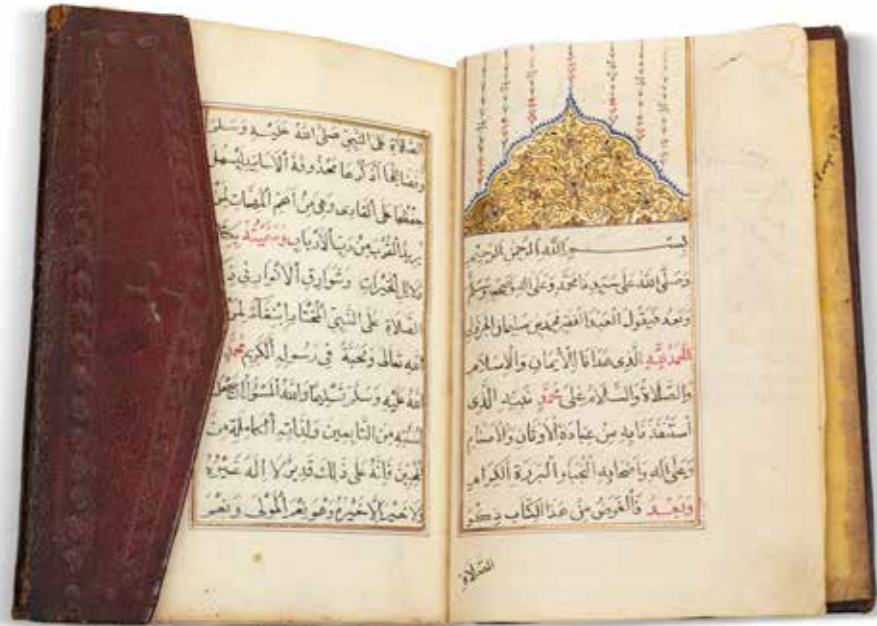 بسم الله الرحمن الرحيم
وصلى الله على سيدنا محمد وعلى اله وصحبه وسلم
وبعد فيقول العبد الفقير محمد بن سليمان الجزولي
الحمد لله الذى هدانا للأيمان والاسلام
والصلاة والسلام على محمد نبيه الذى
استنقذنا به من عبادة الأوثان والأصنام
وعلى اله واصحابه النجباء البررة الكرام
وبعد فالغرض من هذا الكتاب ذكر
الصلاة
الصلاة على النبي صلى الله عليه وسلم
وفضائلها أذكرها محذوفة الاسانيد ليسهل
حفظها على القارى وهي من أهم المهمات لمن
يريد القرب من رب الأرباب وسميته بكتاب
دلائل الخيرات وشوارق الأنوار في ذكر
الصلاة على النبي المختار ابتغاء لمرضات
الله تعالى ومحبة في رسوله الكريم محمد
الله عليه وسلم تسليما والله المسؤل ان يجعل
لسنته من التابعين ولذاته الكاملة من
المحبين فانه على ذلك قدير لا اله غيره
ولا خير الا خيره وهو نعم المولى ونعم